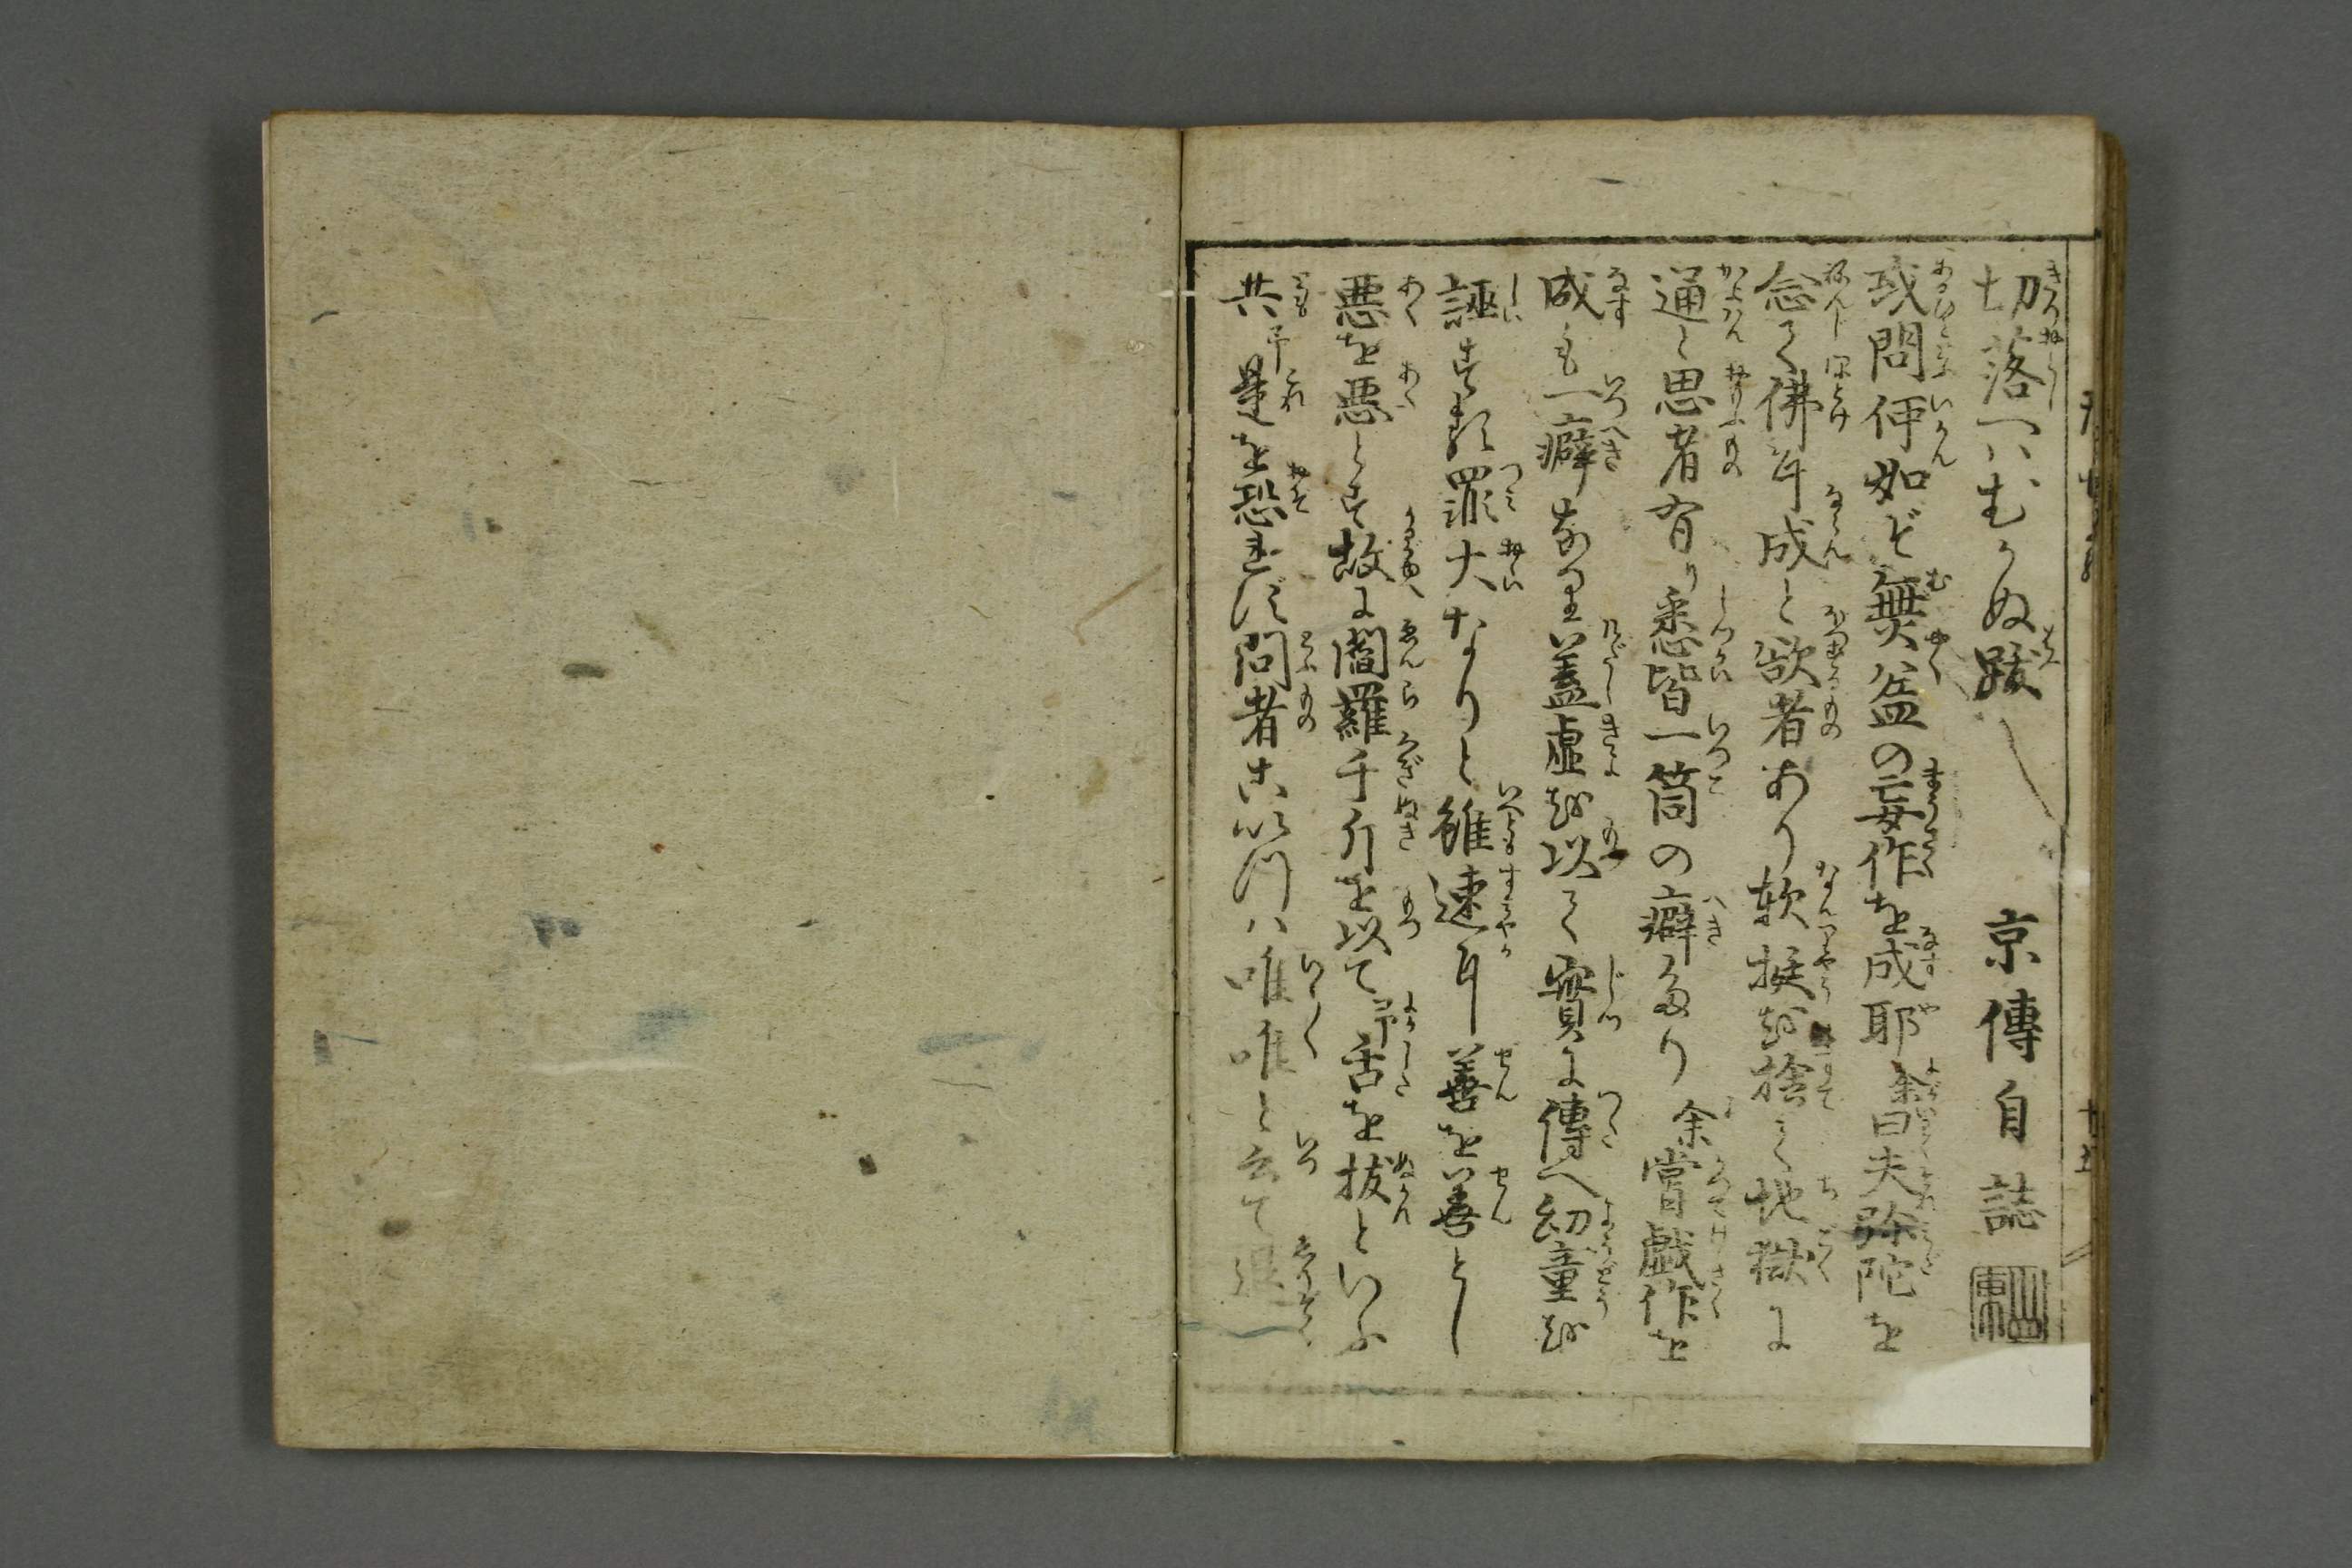 切落へはむかぬ跋 京傳自誌
或問何如ど無益の妄作を成耶余曰夫弥陀を
念て佛に成と欲者あり軟挺を捨て地獄に
通と思者有り悉皆一箇の癖なり余嘗戯作を
成も一癖なり蓋虚を以て實に傳へ幼童を
誣す罪大なりと雖速に善を善とし
悪を悪とす故に閻羅千斤を以て予舌を抜といふ
共予是を恐れず問者は唯唯と云て退